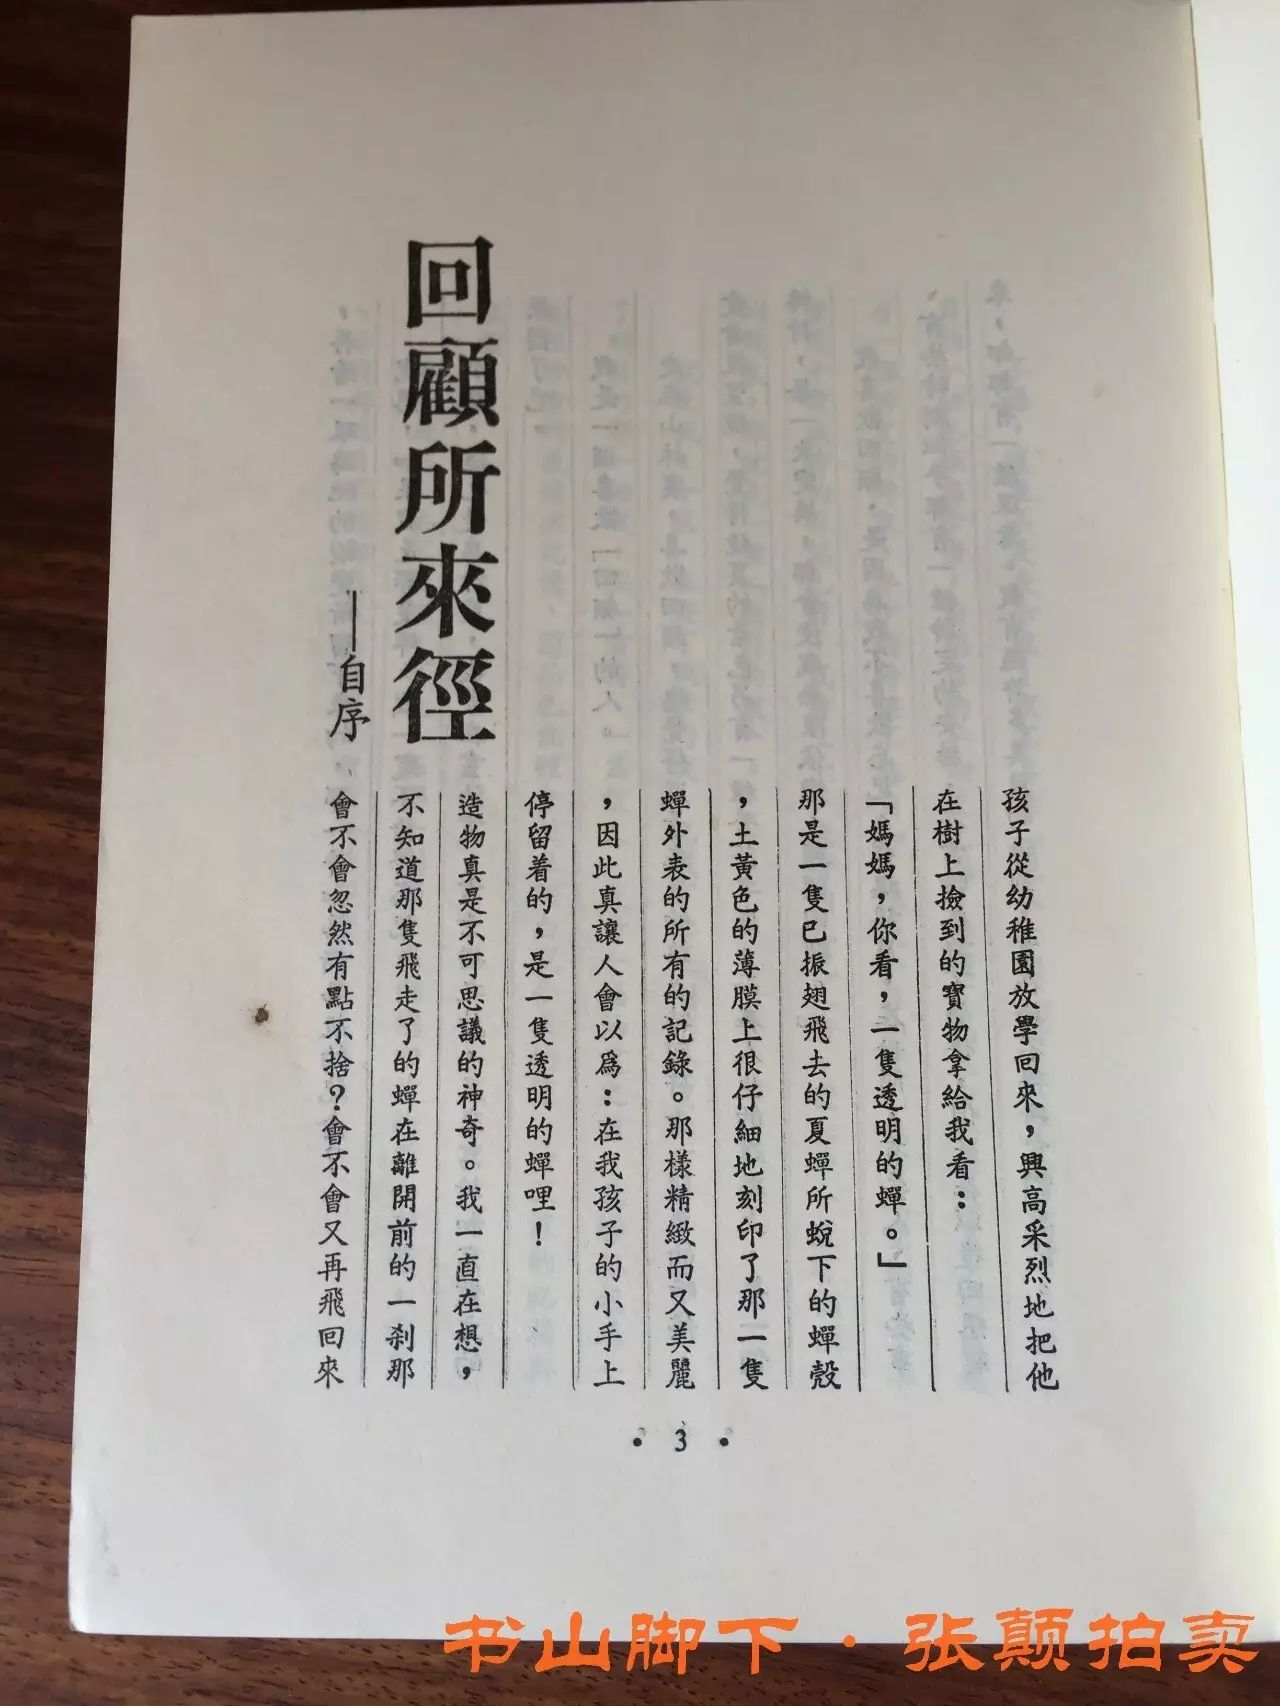 回顧所來徑
——自序
孩子從幼稚園放學回來，興高采烈地把他
在樹上撿到的寶物拿給我看：
「媽媽，你看，一隻透明的蟬。」
那是一隻已振翅飛去的夏蟬所蛻下的蟬殼
，土黃色的薄膜上很仔細地刻印了那一隻
蟬外表的所有的記錄。那樣精緻而又美麗
，因此真讓人會以爲：在我孩子的小手上
停留着的，是一隻透明的蟬哩！
造物真是不可思議的神奇。我一直在想，
不知道那隻飛走了的蟬在離開前的一刹那
會不會忽然有點不捨？會不會又再飛回來
• 3 •
书山脚下·张颠拍卖